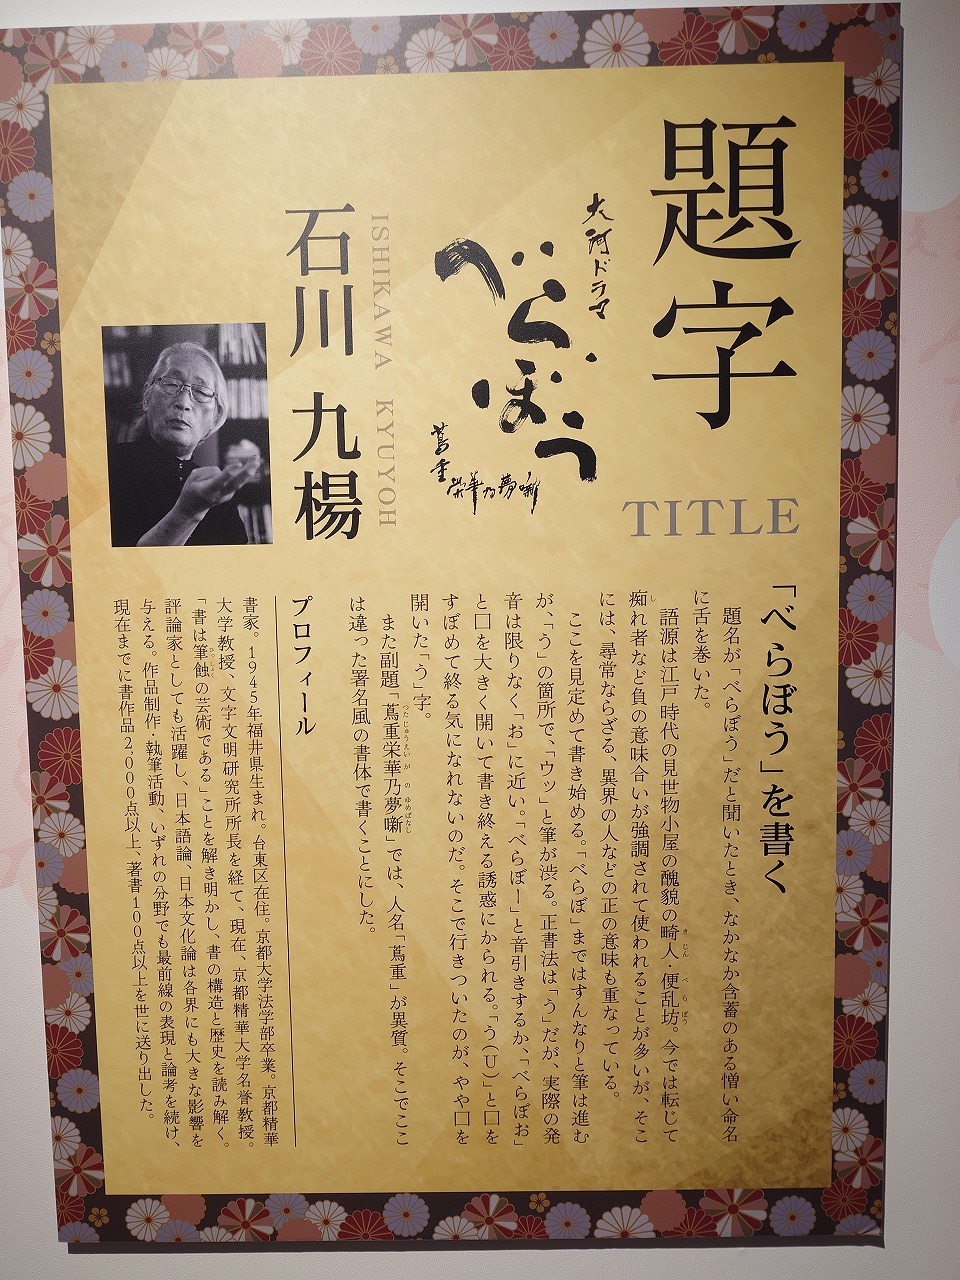 題字
TITLE
大河ドラマ
べらぼう
蔦重栄華乃夢噺
ISHIKAWA KYUYOH
石川 九楊
「べらぼう」を書く
題名が「べらぼう」だと聞いたとき、なかなか含蓄のある憎い命名
に舌を巻いた。
語源は江戸時代の見世物小屋の醜貌の畸人・便乱坊。今では転じて
痴れ者など負の意味合いが強調されて使われることが多いが、そこ
には、尋常ならざる、異界の人などの正の意味も重なっている。
ここを見定めて書き始める。「べらぼ」まではすんなりと筆は進む
が、「う」の箇所で、「ウッ」と筆が渋る。正書法は「う」だが、実際の発
音は限りなく「お」に近い。「べらぼー」と音引きするか、「べらぼお」
と口を大きく開いて書き終える誘惑にかられる。「う(U)」と口を
すぼめて終る気になれないのだ。そこで行きついたのが、やや口を
開いた「う」字。
また副題「蔦重栄華乃夢噺」では、人名「蔦重」が異質。そこでここ
は違った署名風の書体で書くことにした。
プロフィール
書家。1945年福井県生まれ。台東区在住。京都大学法学部卒業。京都精華
大学教授、文字文明研究所所長を経て、現在、京都精華大学名誉教授。
「書は筆蝕の芸術である」ことを解き明かし、書の構造と歴史を読み解く。
評論家としても活躍し、日本語論、日本文化論は各界にも大きな影響を
与える。作品制作・執筆活動、いずれの分野でも最前線の表現と論考を続け、
現在までに書作品2,000点以上、著書100点以上を世に送り出した。